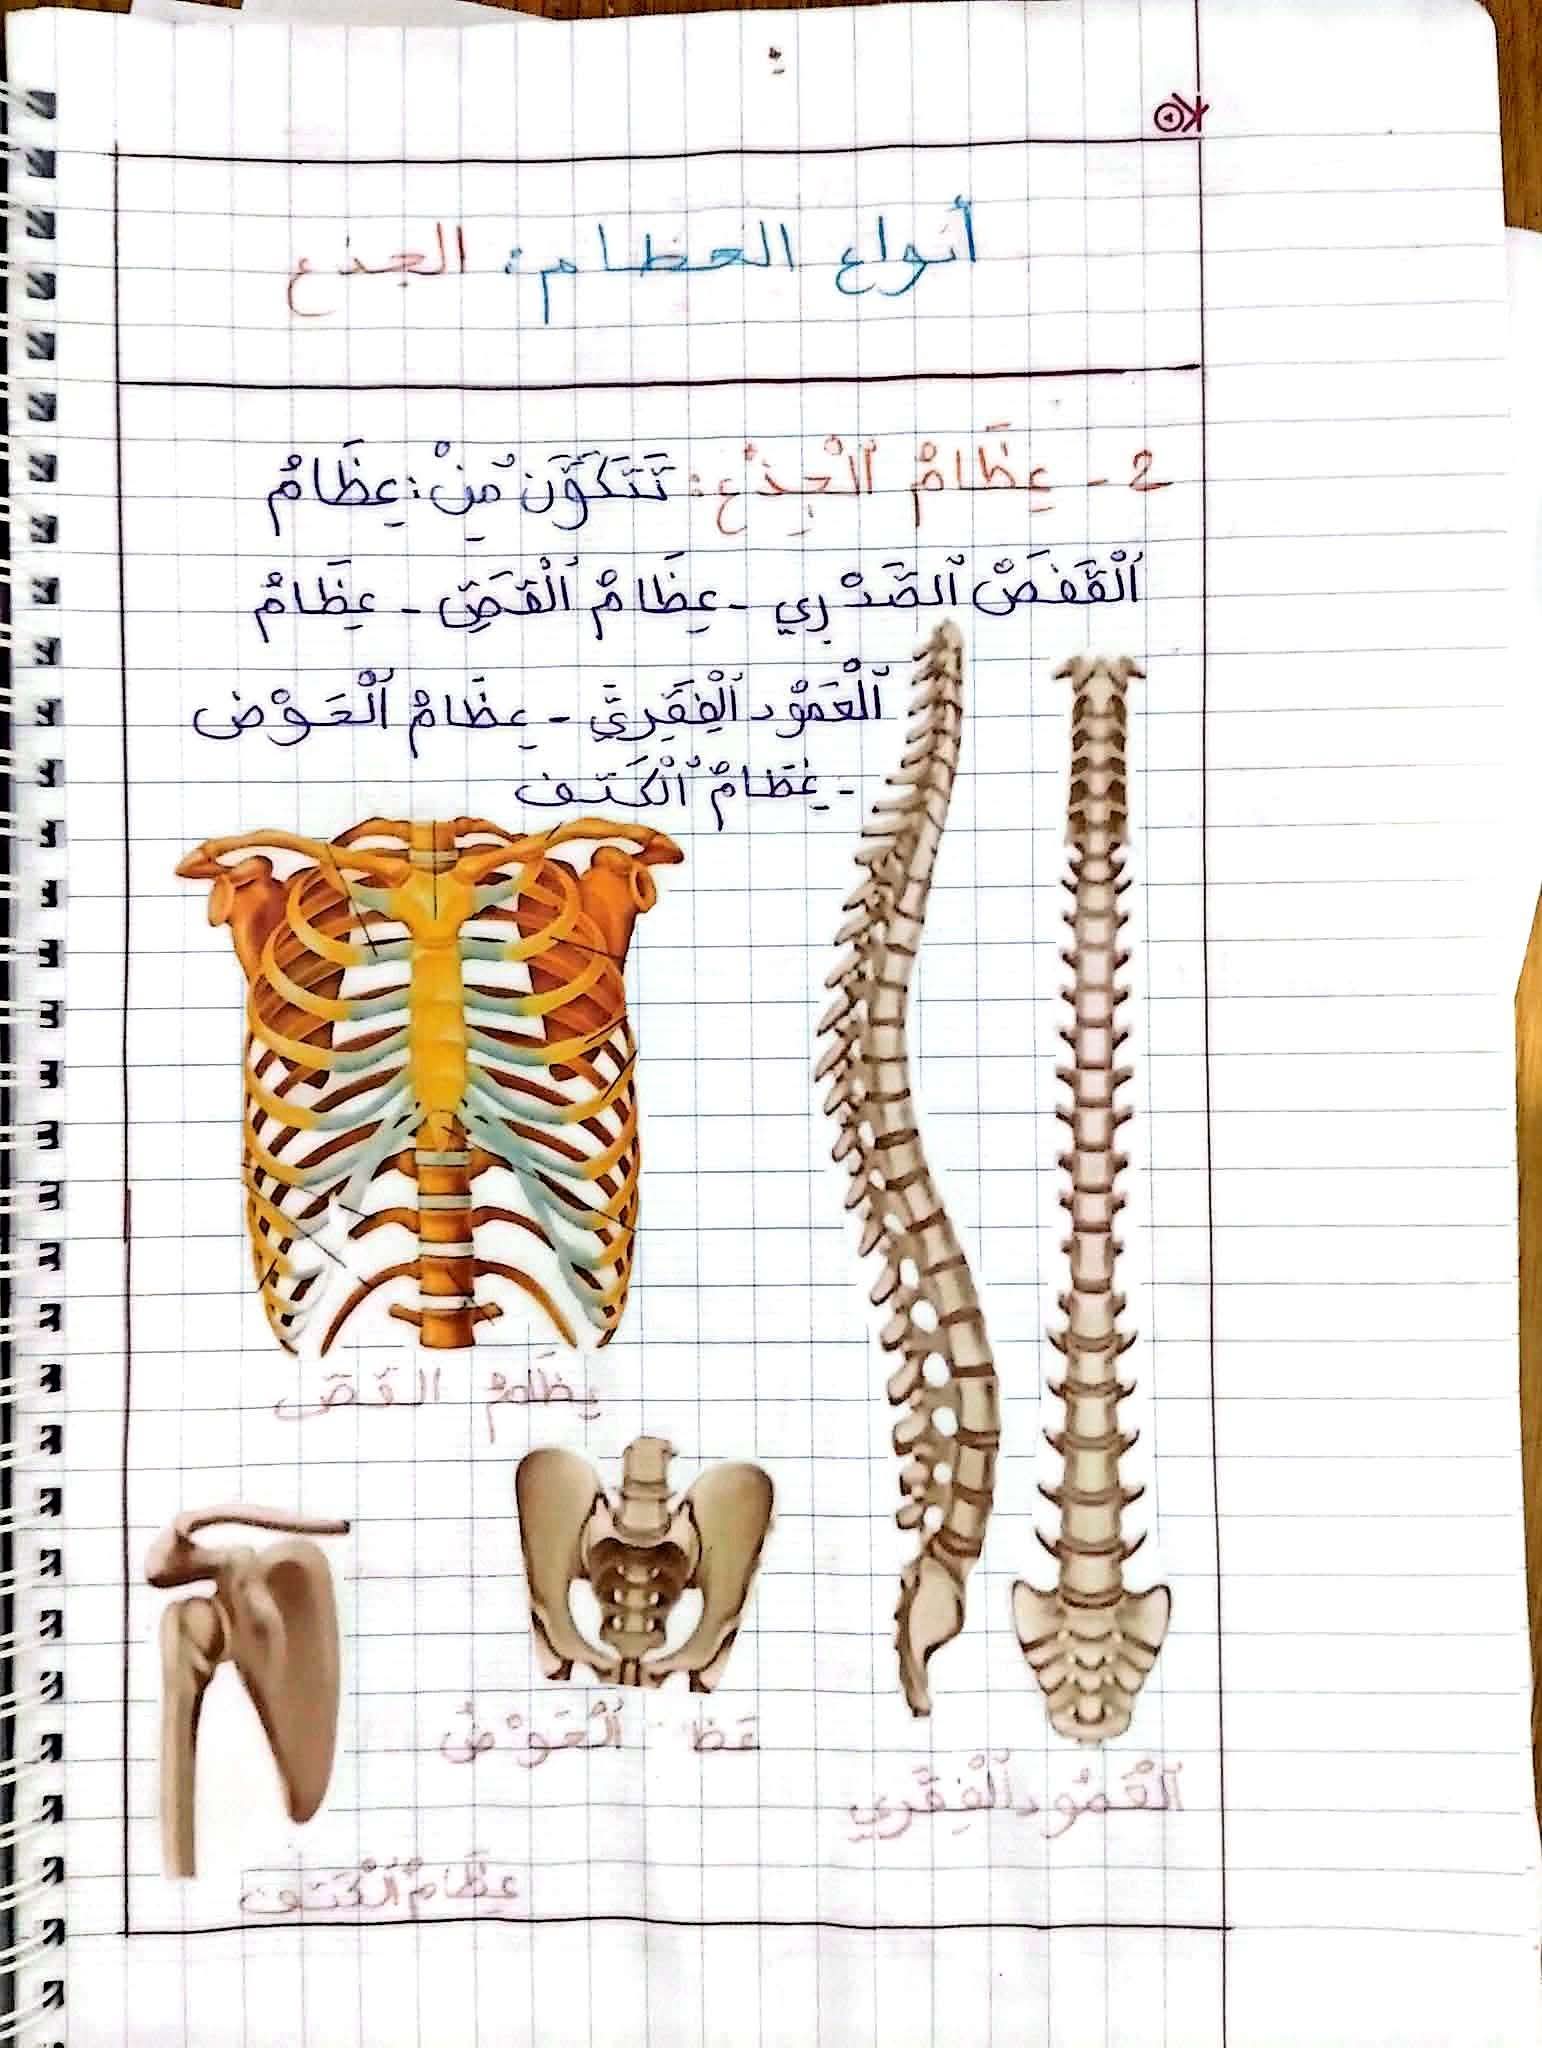 أنواع العظام: الجذع
2 - عِظَامُ ٱلْجِذْعِ: تَتَكَوَّن مِنْ: عِظَامُ
ٱلْقَفَصْ ٱلصَّدْرِي - عِظَامُ ٱلْقَصِّ - عِظَامُ
ٱلْعَمُود ٱلْفِقَرِيَّ - عِظَامُ ٱلْحَوْض
- عِظَامُ ٱلْكَتف
عظَامُ القصّ
عَظ ٱلْحَوْضُ
ٱلْعَمُود ٱلْفِقَرِي
عِظَامُ ٱلْكَتف